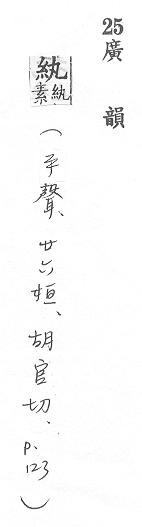 25廣韻
紈
紈素
(平聲、廿六桓、胡官切、p.123)